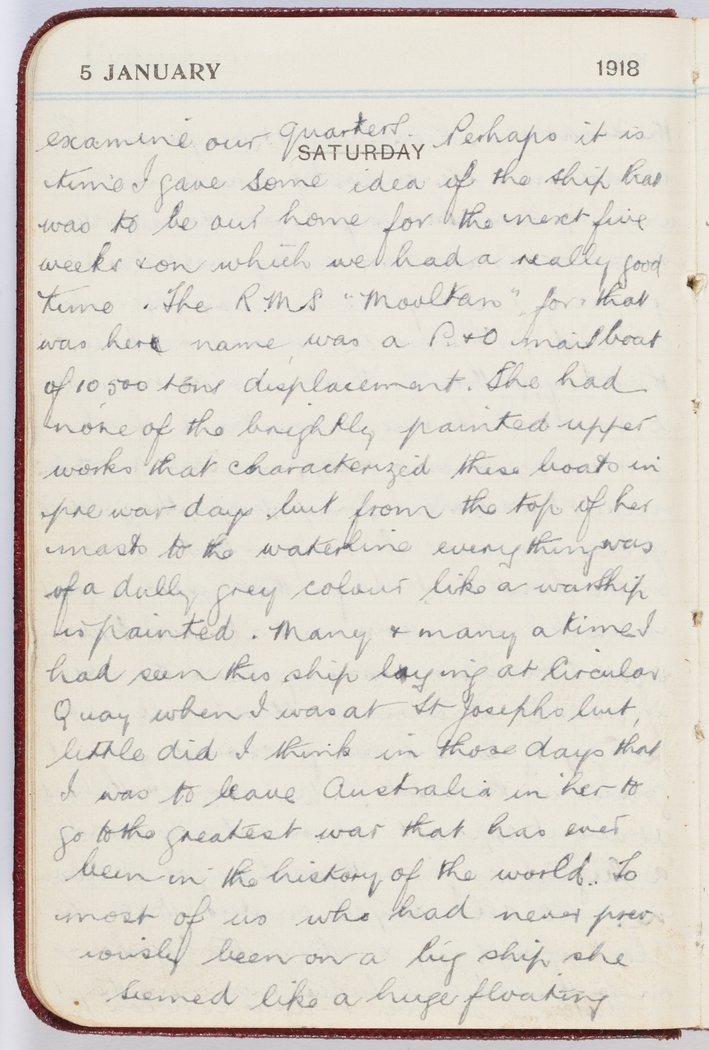 5 JANUARY 1918
SATURDAY
examine our quarters. Perhaps it is
time I gave some idea of the ship that
was to be our home for the next five
weeks & on which we had a really good
time. The R.M.S "Mooltan" for that
was here name, was a P. & O mail boat
of 10500 tons displacement. She had
none of the brightly painted upper
works that characterized these boats in
pre war days, but from the top of her
masts to the waterline everything was
of a dully grey colour like a warship
is painted. Many & many a time I
had seen this ship laying at Circular
Quay when I was at St Josephs but,
little did I think in those days that
I was to leave Australia in her to
go to the greatest war that has ever
been in the history of the world. To
most of us who had never prev
iously been on a big ship she
seemed like a huge floating